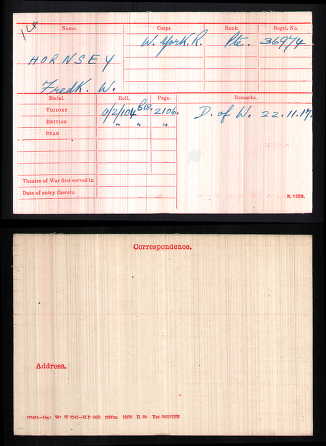 Name. Corps. Rank. Regtl. No.
W. York. R. Pte. 36974
HORNSEY
Fredk. W.
Medal. Roll. Page. Remarks.
VICTORY O/2/104 2106. D. of W. 22.11.17.
BRITISH " " "
STAR
Theatre of War first served in
Date of entry therein
K. 1380.
Correspondence.
Address.